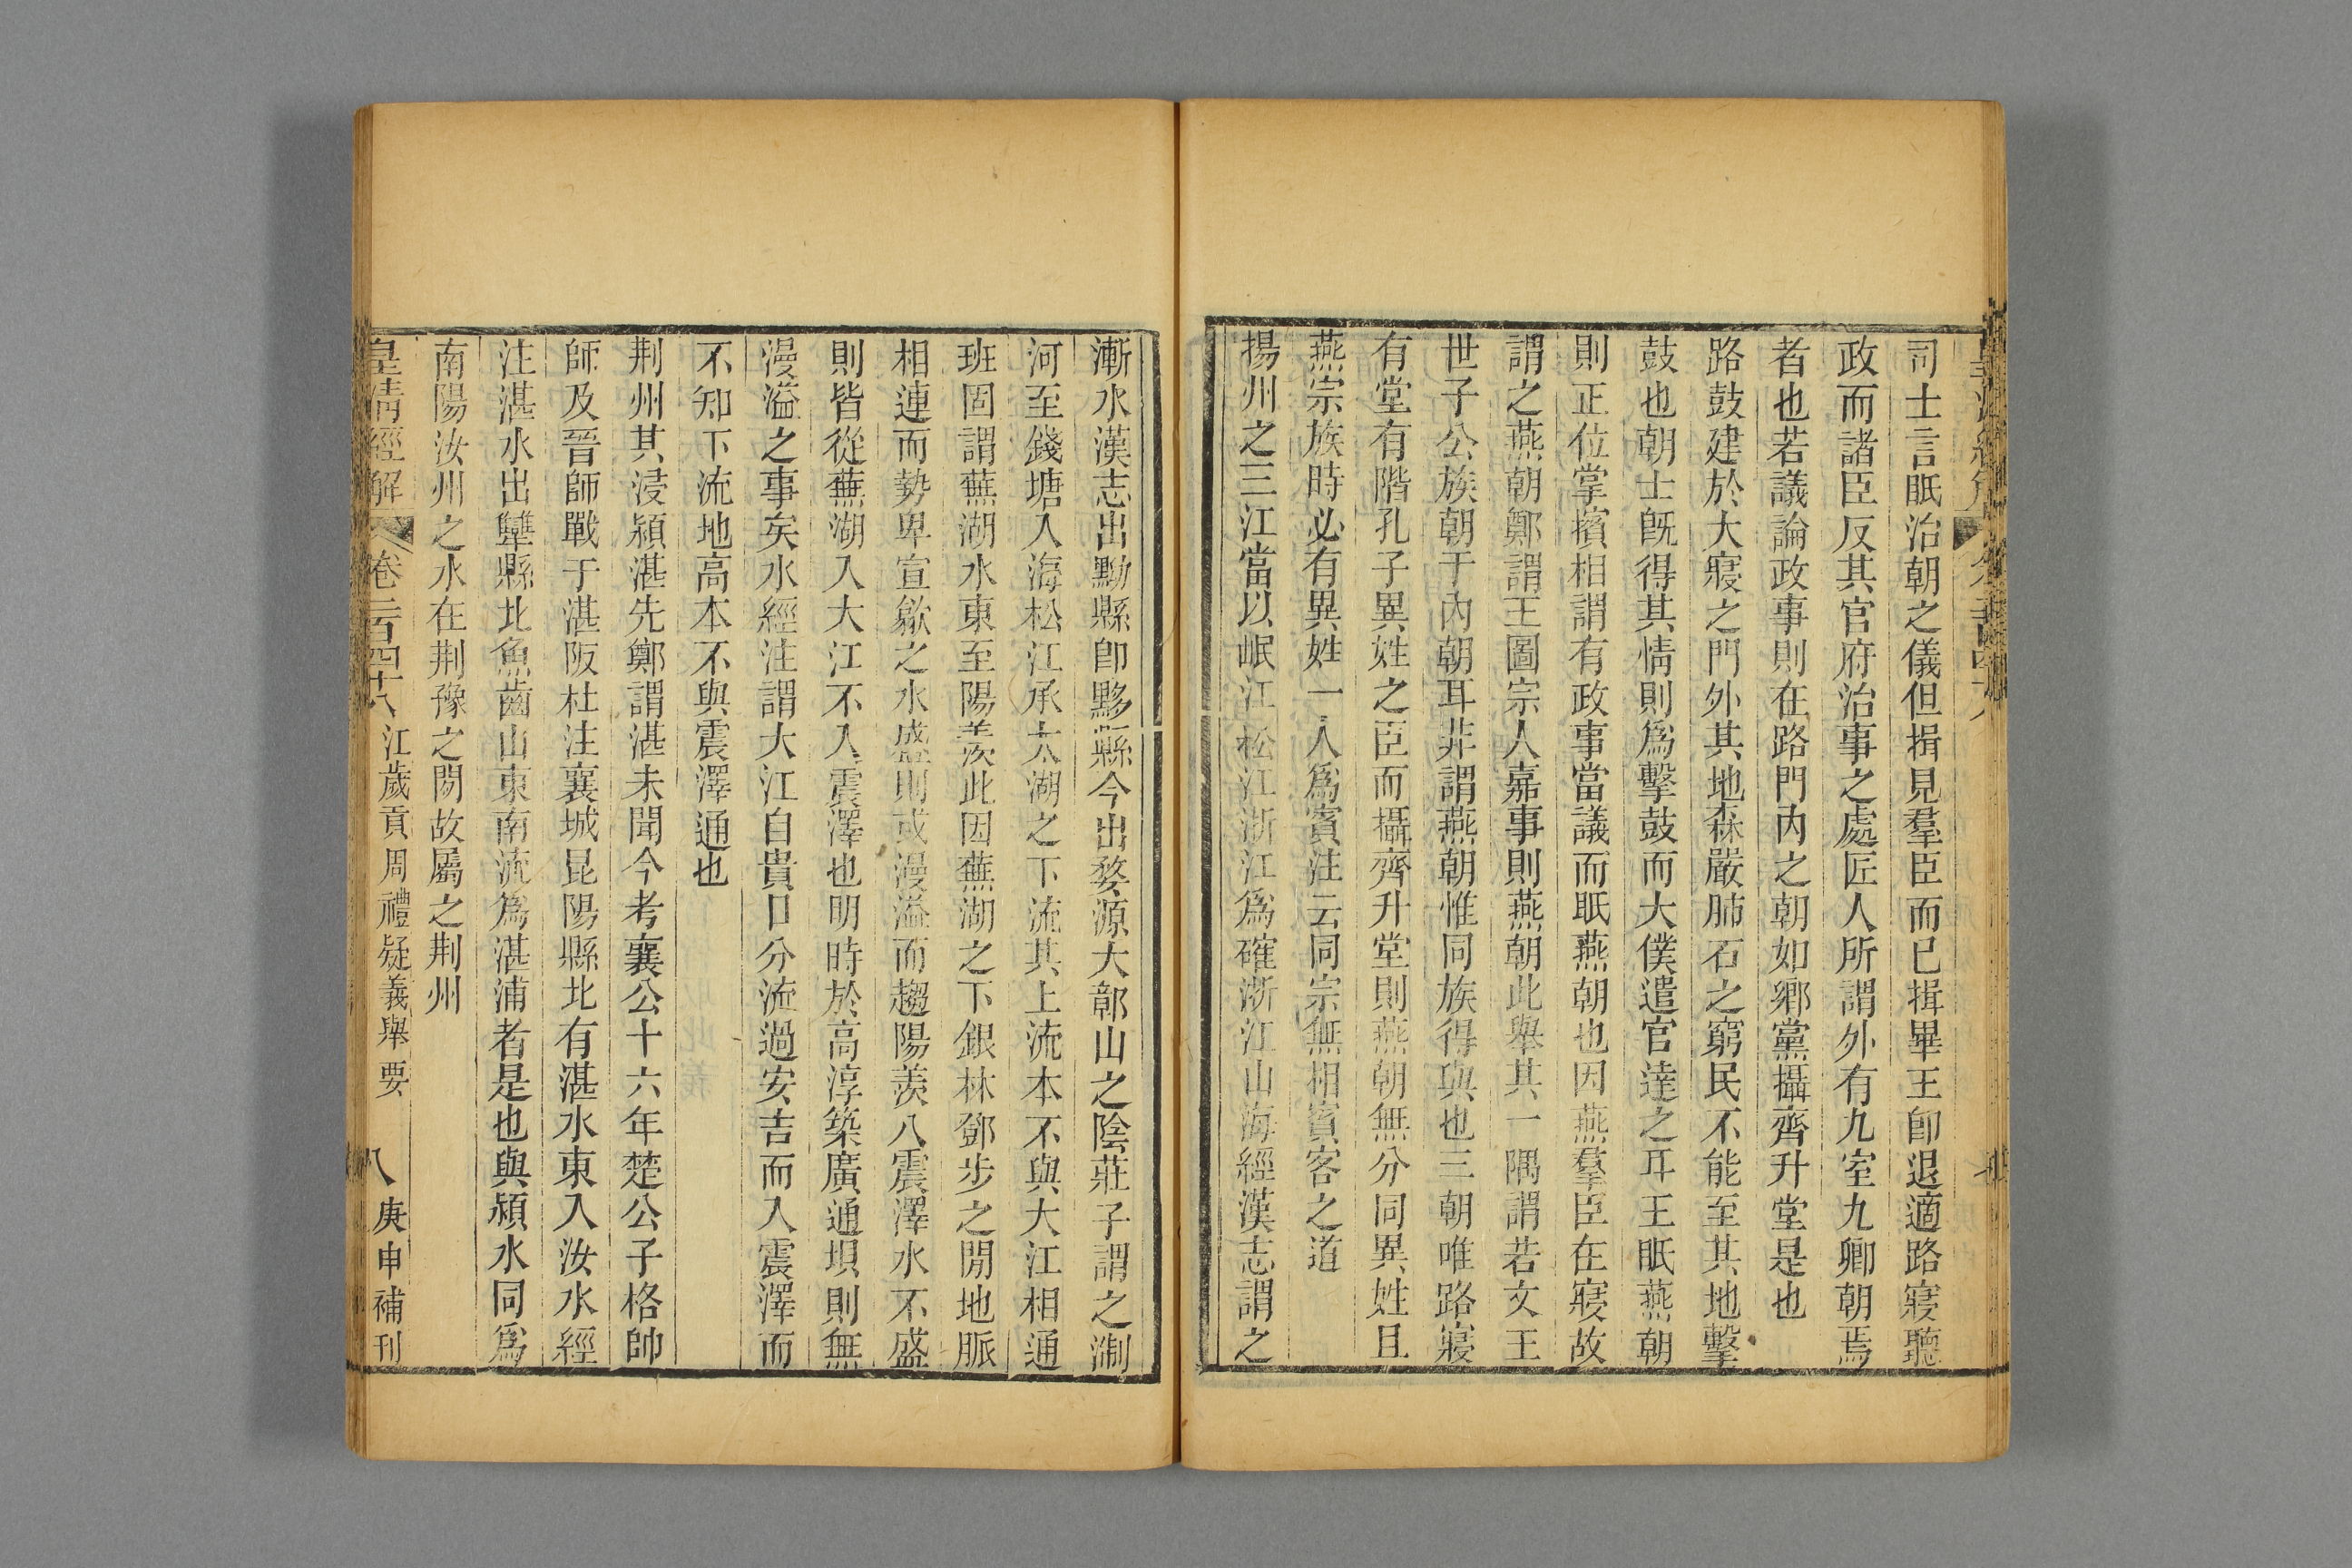 司士言眂治朝之儀但揖見羣臣而已揖畢王卽退適路寢聽
政而諸臣反其官府治事之處匠人所謂外有九室九卿朝焉
者也若議論政事則在路門內之朝如鄉黨攝齊升堂是也
路鼓建於大寢之門外其地森嚴肺石之窮民不能至其地擊
鼓也朝士旣得其情則爲擊鼓而大僕遣官達之耳王眂燕朝
則正位掌擯相謂有政事當議而眂燕朝也因燕羣臣在寢故
謂之燕朝鄭謂王圖宗人嘉事則燕朝此舉其一隅謂若文王
世子公族朝于內朝耳非謂燕朝惟同族得與也三朝唯路寢
有堂有階孔子異姓之臣而攝齊升堂則燕朝無分同異姓且
燕宗族時必有異姓一人爲賓注云同宗無相賓客之道
揚州之三江當以岷江松江浙江爲確浙江山海經漢志謂之
漸水漢志出黝縣卽黟縣今出婺源大鄣山之陰莊子謂之淛
河至錢塘入海松江承太湖之下流其上流本不與大江相通
班固謂蕪湖水東至陽羨此因蕪湖之下銀林鄧步之閒地脈
相連而勢卑宣歙之水盛則或漫溢而趨陽羨入震澤水不盛
則皆從蕪湖入大江不入震澤也明時於高淳築廣通垻則無
漫溢之事矣水經注謂大江自貴口分流過安吉而入震澤而
不知下流地高本不與震澤通也
荆州其浸潁湛先鄭謂湛未聞今考襄公十六年楚公子格帥
師及晉師戰于湛阪杜注襄城昆陽縣北有湛水東入汝水經
注湛水出犫縣北魚齒山東南流爲湛浦者是也與潁水同爲
南陽汝州之水在荆豫之閒故屬之荆州
皇淸經解 卷二百四十八 江歲貢周禮疑義舉要 八 庚申補刊